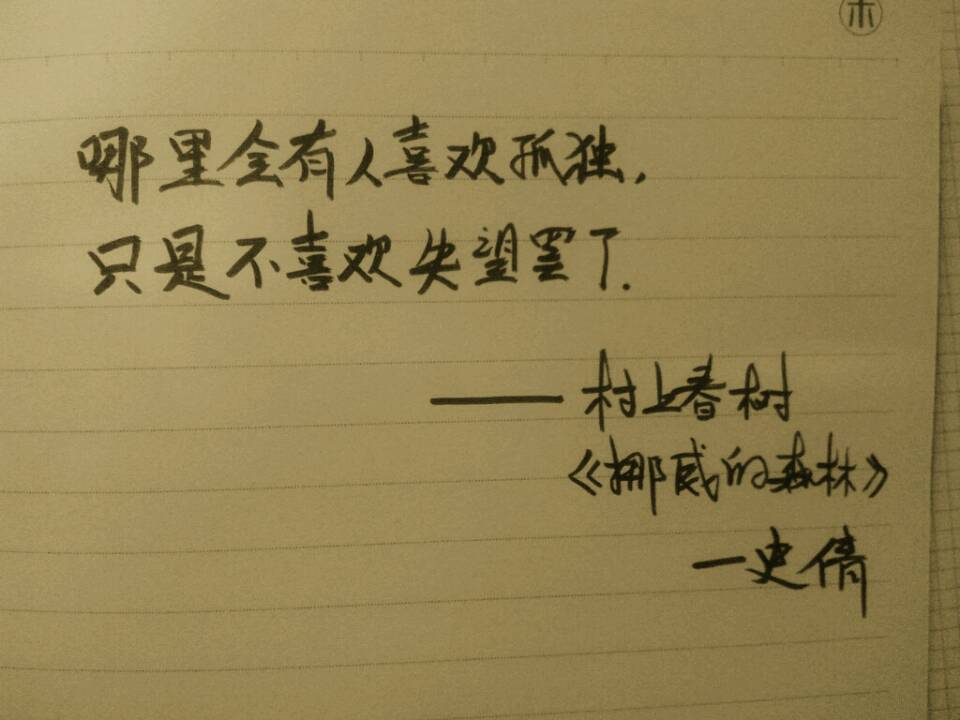 哪里会有人喜欢孤独,
只是不喜欢失望罢了.
——村上春树
《挪威的森林》
—史倩